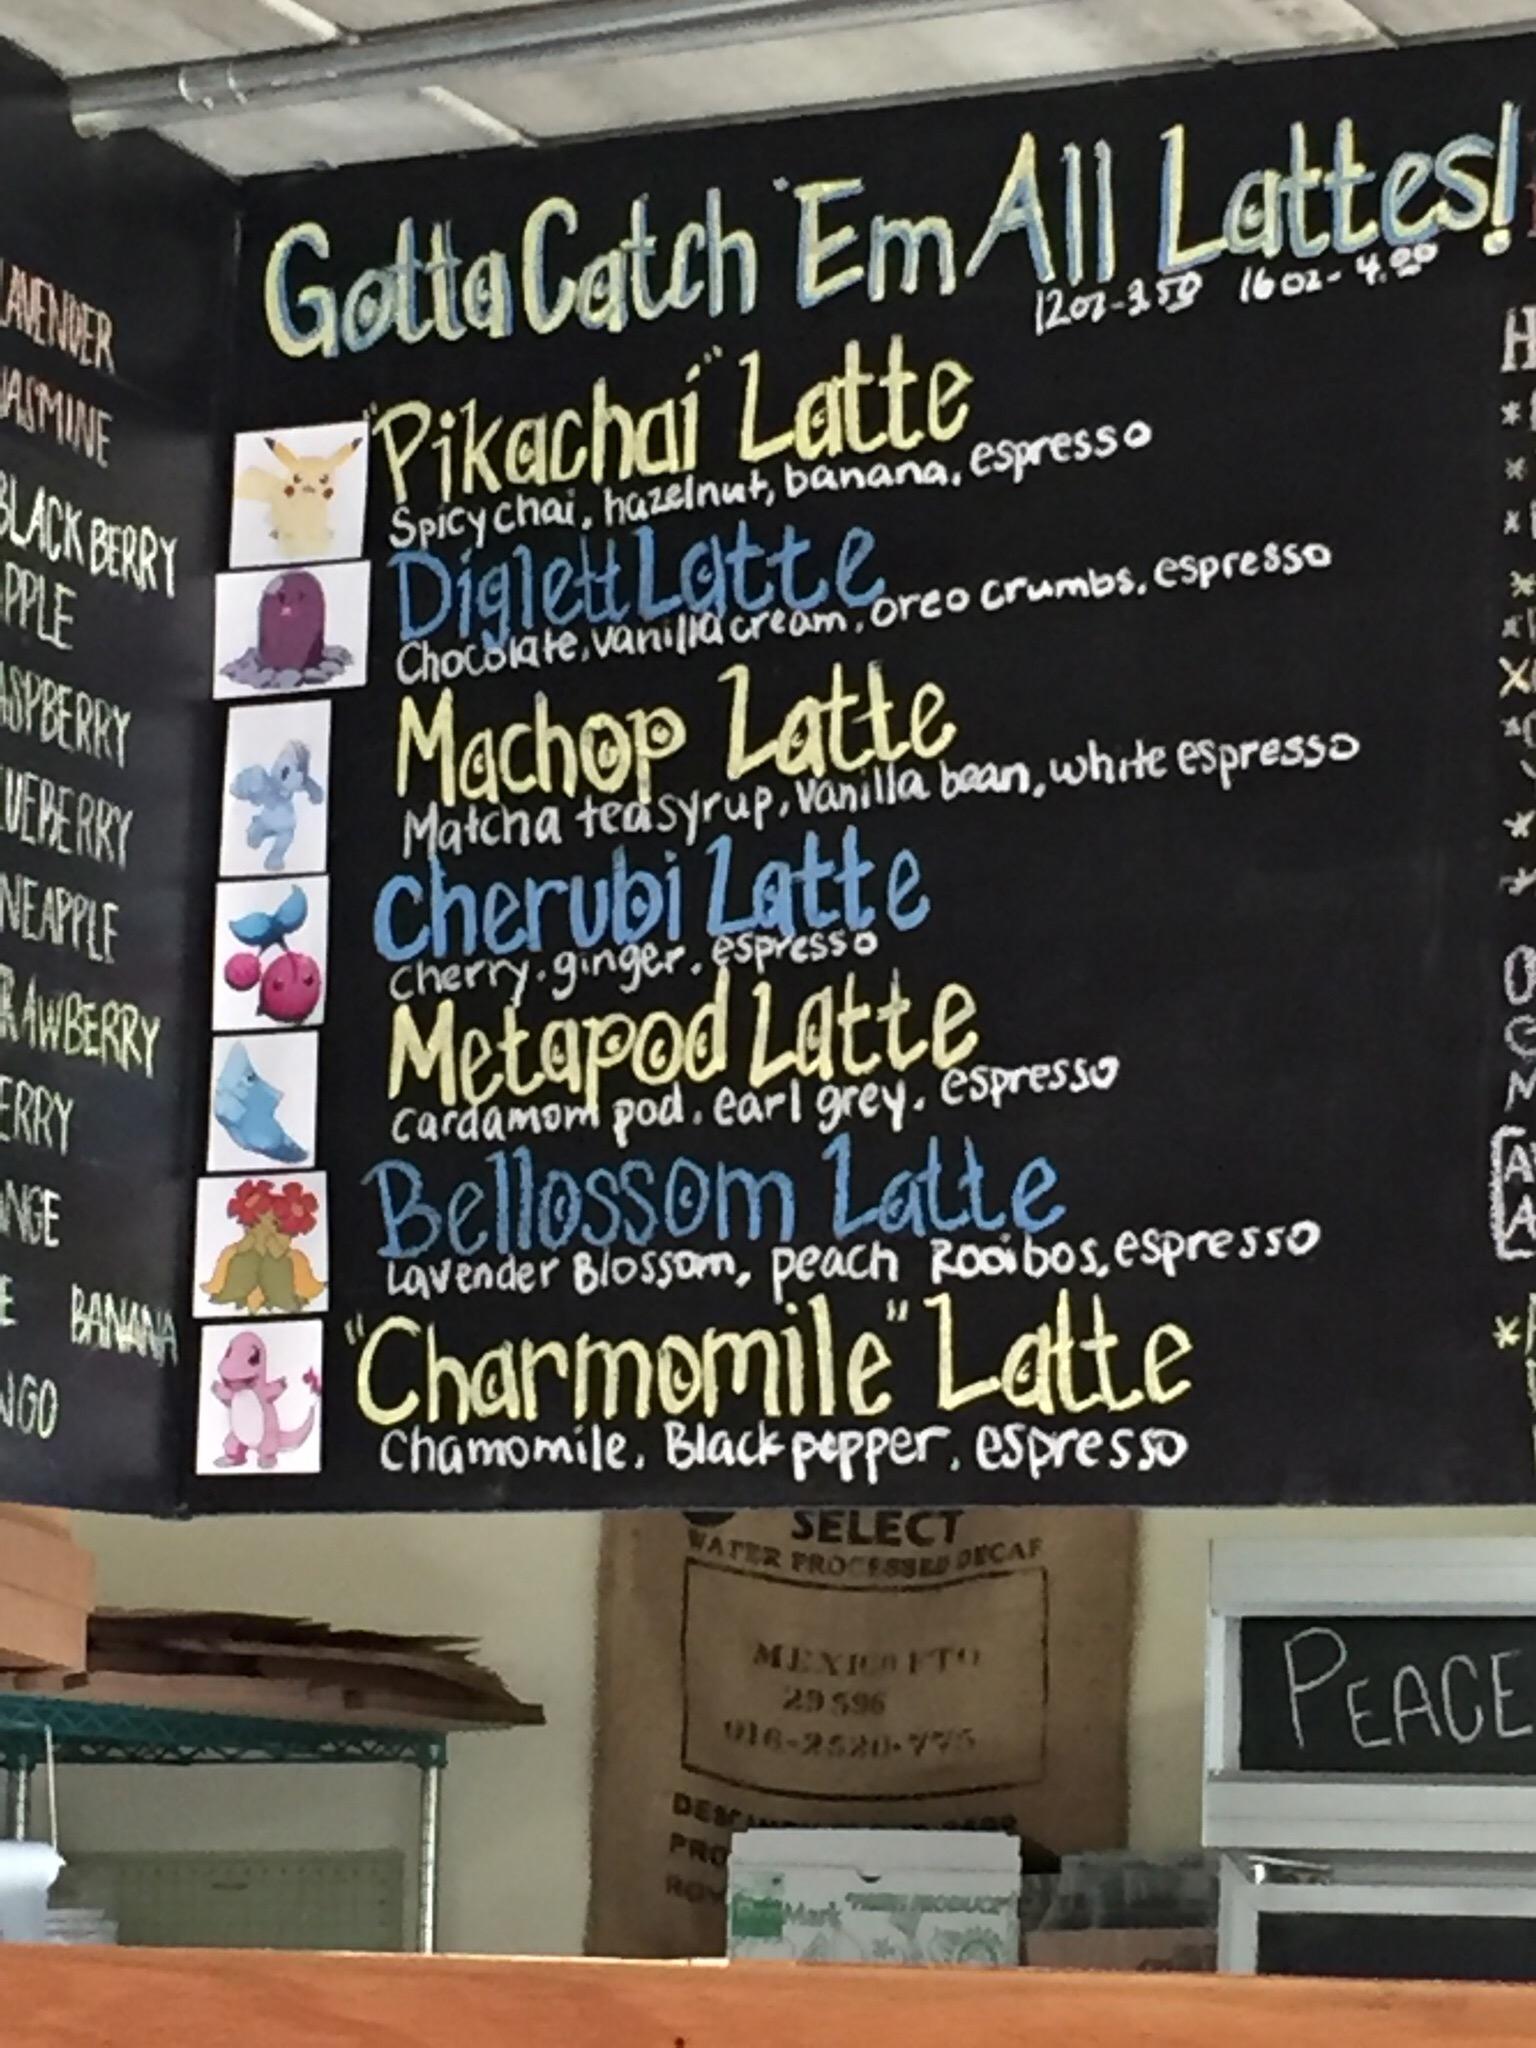 Gotta Catch 'Em All Lattes!
12oz-3.50 16oz-4.00
"Pikachai" Latte
Spicy chai, hazelnut, banana, espresso
Diglett Latte
Chocolate, vanilla cream, oreo crumbs, espresso
Machop Latte
Matcha tea syrup, vanilla bean, white espresso
Cherubi Latte
Cherry, ginger, espresso
Metapod Latte
Cardamom pod, earl grey, espresso
Bellossom Latte
Lavender Blossom, peach Rooibos, espresso
"Charmomile" Latte
Chamomile, Black pepper, espresso
LAVENDER
JASMINE
BLACKBERRY
PPLE
ASPBERRY
UEBERRY
NEAPPLE
TRAWBERRY
ERRY
ANGE
E BANANA
NGO
SELECT
WATER PROCESSED DECAF
MEXICO FTO
29596
016-2520-775
PRO
PEACE